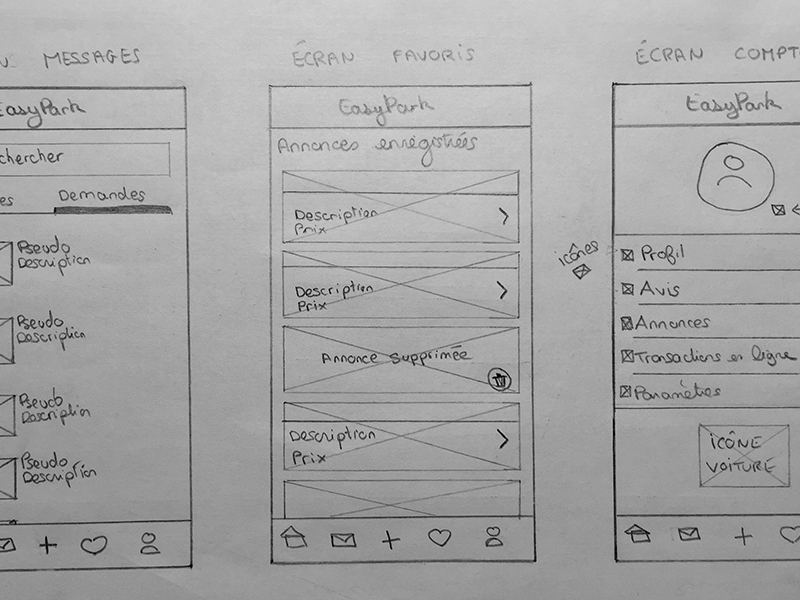 MESSAGES
EasyPark
chercher
es
Demandes
Pseudo
Description
Pseudo
Description
Pseudo
Description
Pseudo
Description
ÉCRAN FAVORIS
EasyPark
Annonces enregistrées
Description
Prix
Description
Prix
Annonce supprimée
Description
Prix
ÉCRAN COMPT
EasyPark
icônes
Profil
Avis
Annonces
Transactions en ligne
Paramètres
ICÔNE
VOITURE